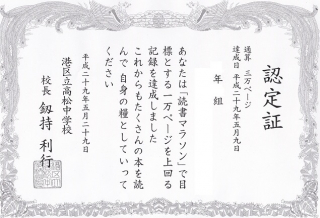 認定証
通算 三万ページ
達成日 平成二十九年五月九日
年 組
あなたは「読書マラソン」で目
標とする一万ページを上回る
記録を達成しました
これからもたくさんの本を読
んで自身の糧としていって
ください
平成二十九年五月二十九日
港区立高松中学校
校長 釼持 利行